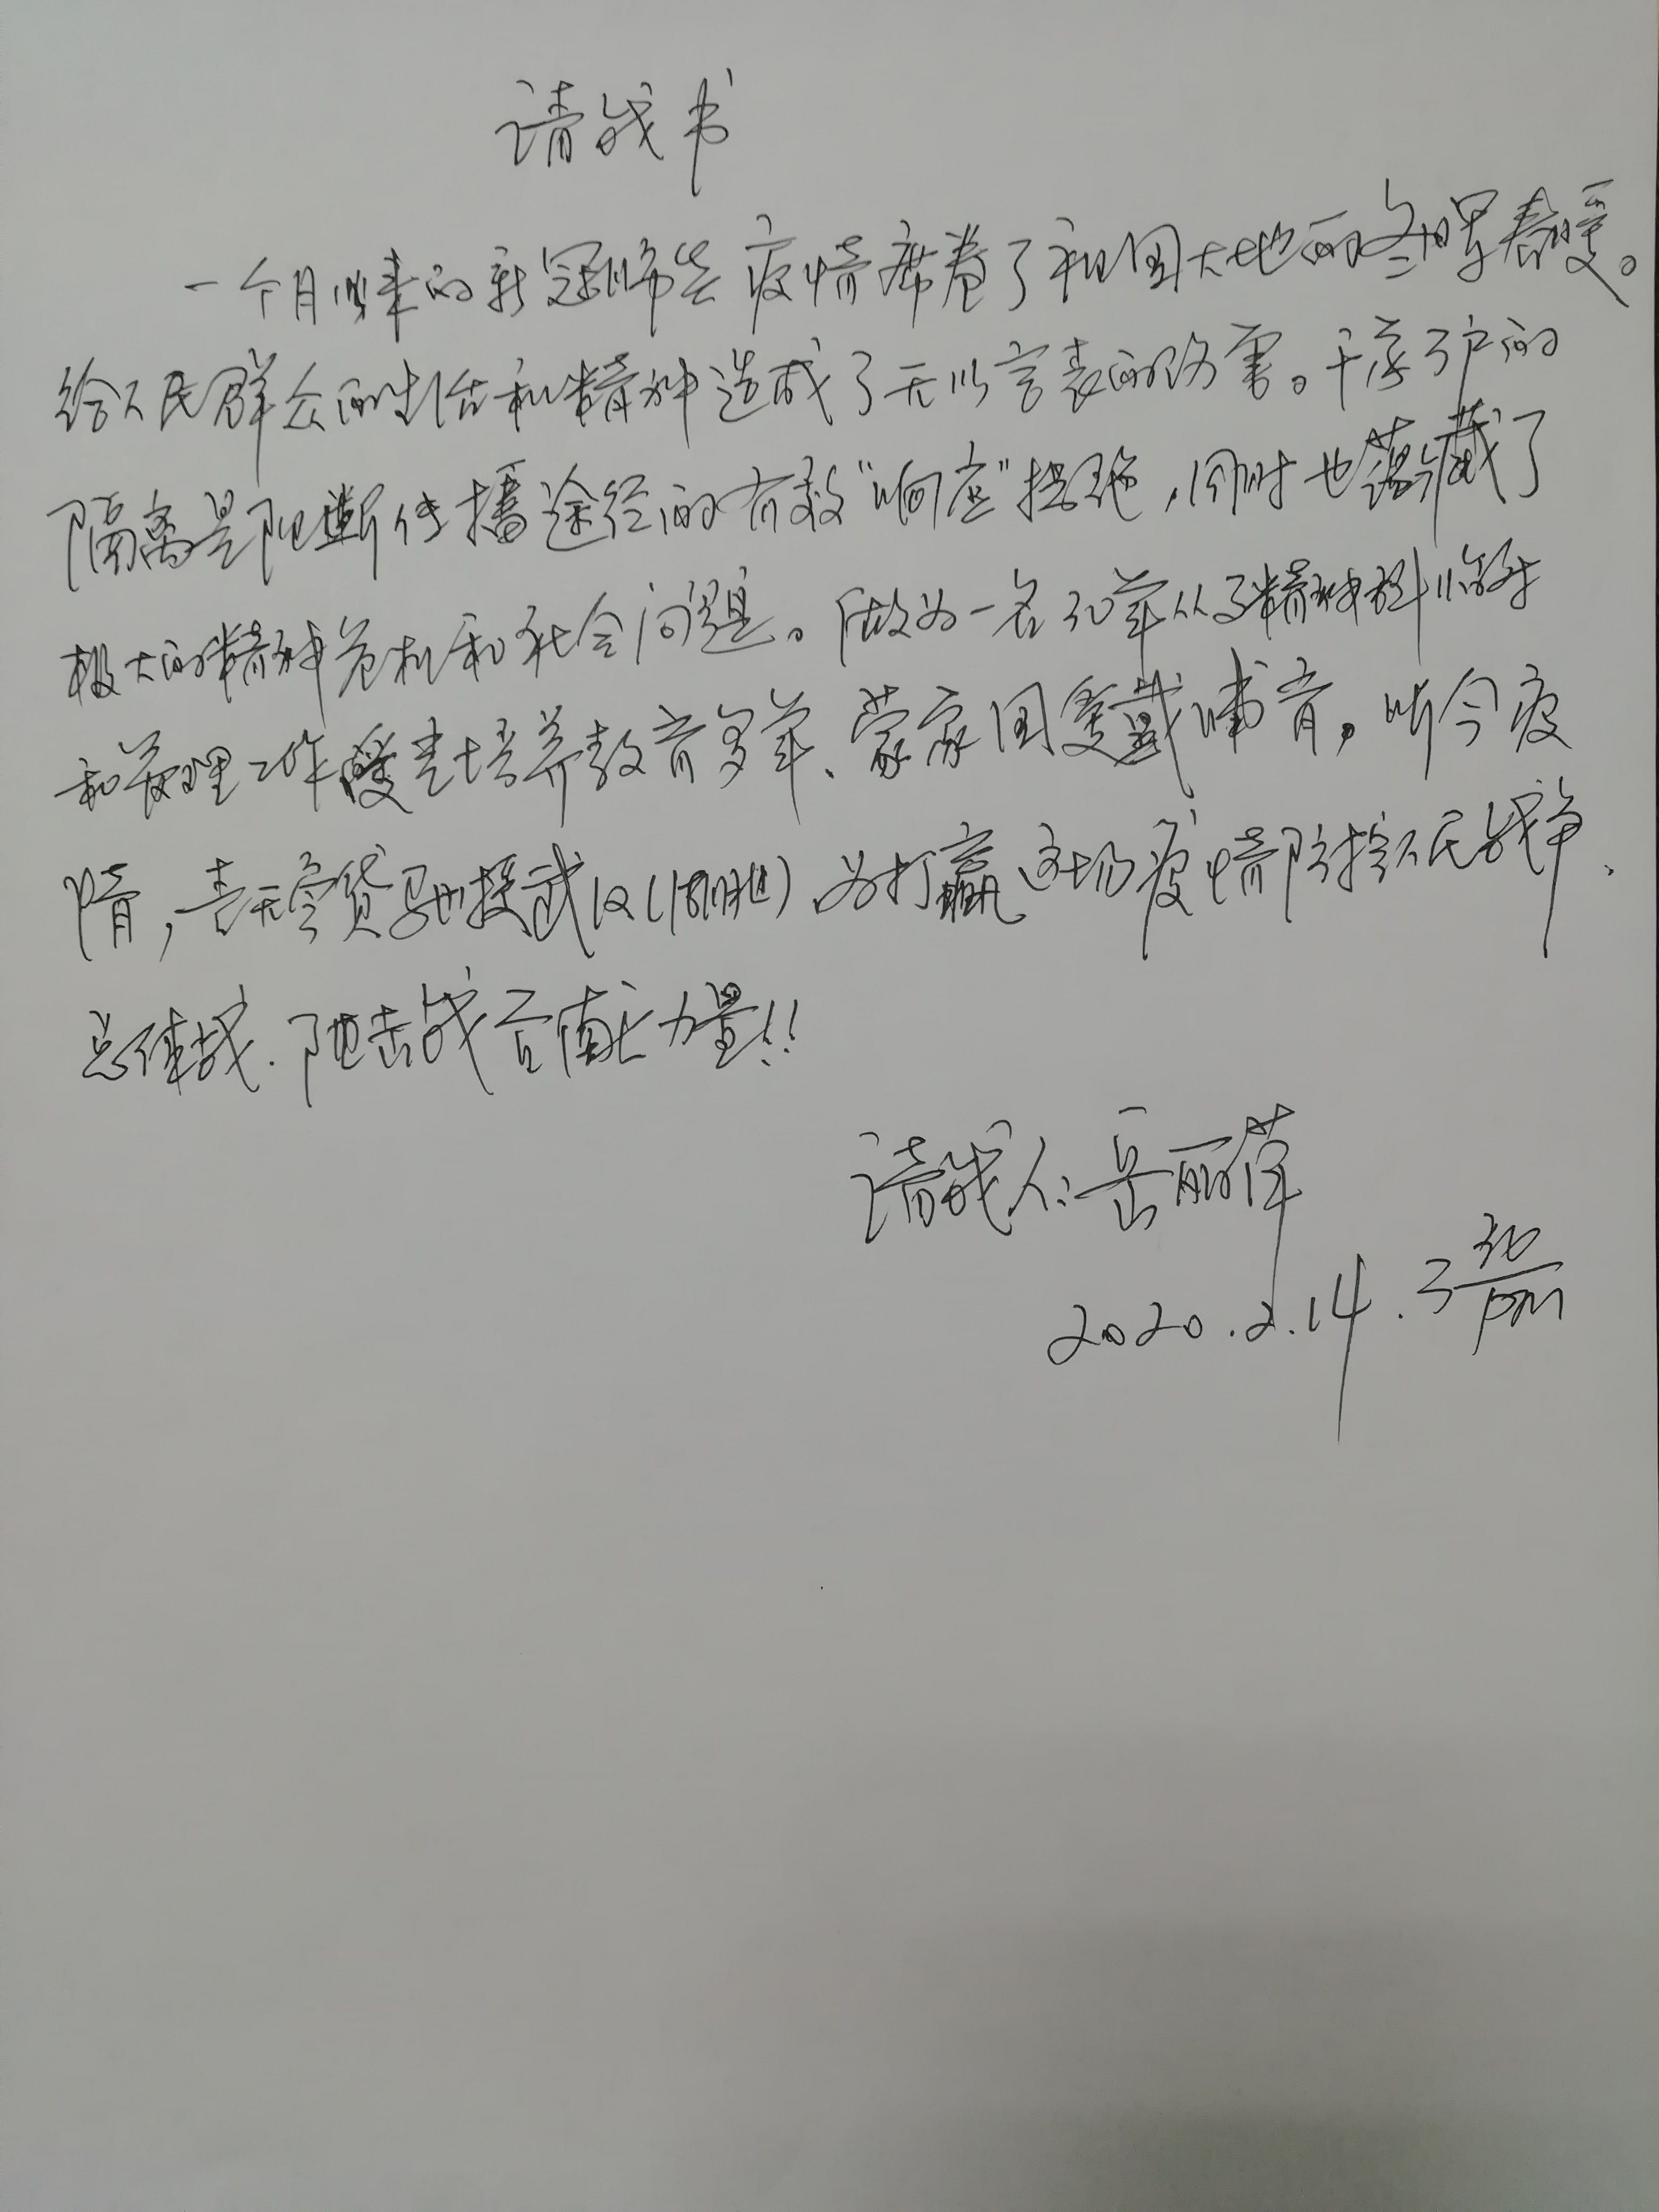 请战书
一个月以来的新冠肺炎疫情席卷了祖国大地的冬暖春暖。
给人民群众的生活和精神造成了无以言表的伤害。千家万户的
隔离是阻断传播途径的有效"响应"措施,同时也蕴藏了
极大的精神危机和社会问题。做为一名30年从事精神科临床
和管理工作受党培养教育多年、蒙家国爱戴哺育。听今疫
情,责无旁贷驰援武汉(湖北)为打赢这场疫情防控人民战争、
总体战.阻击战贡献力量!!
请战人:岳丽萍
2020.2.14.3 30 pm